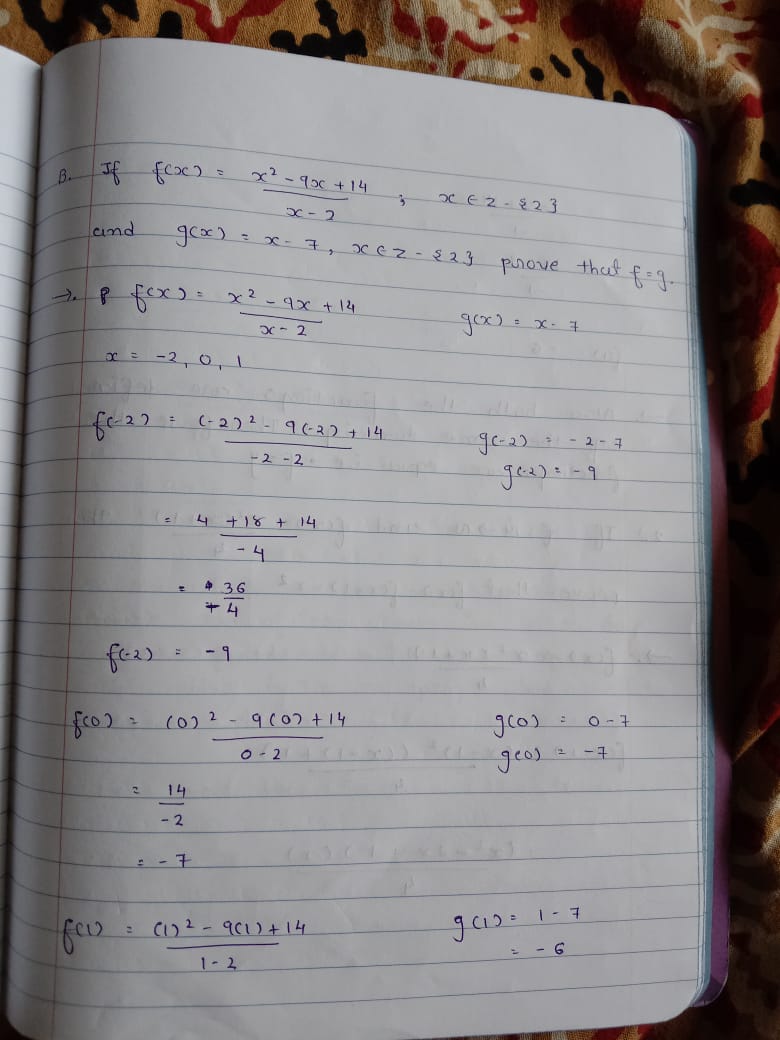 B. If f(x) = x² - 9x + 14 / x - 2 ; x ∈ z - {2}
and g(x) = x - 7, x ∈ z - {2} prove that f = g.
→. f(x) = x² - 9x + 14 / x - 2 g(x) = x - 7
x = -2, 0, 1
f(-2) = (-2)² - 9(-2) + 14 / -2 -2 g(-2) = -2 - 7
g(-2) = -9
= 4 + 18 + 14 / -4
= 36 / -4
f(-2) = -9
f(0) = (0)² - 9(0) + 14 / 0 - 2 g(0) = 0 - 7
g(0) = -7
= 14 / -2
= -7
f(1) = (1)² - 9(1) + 14 / 1 - 2 g(1) = 1 - 7
= -6